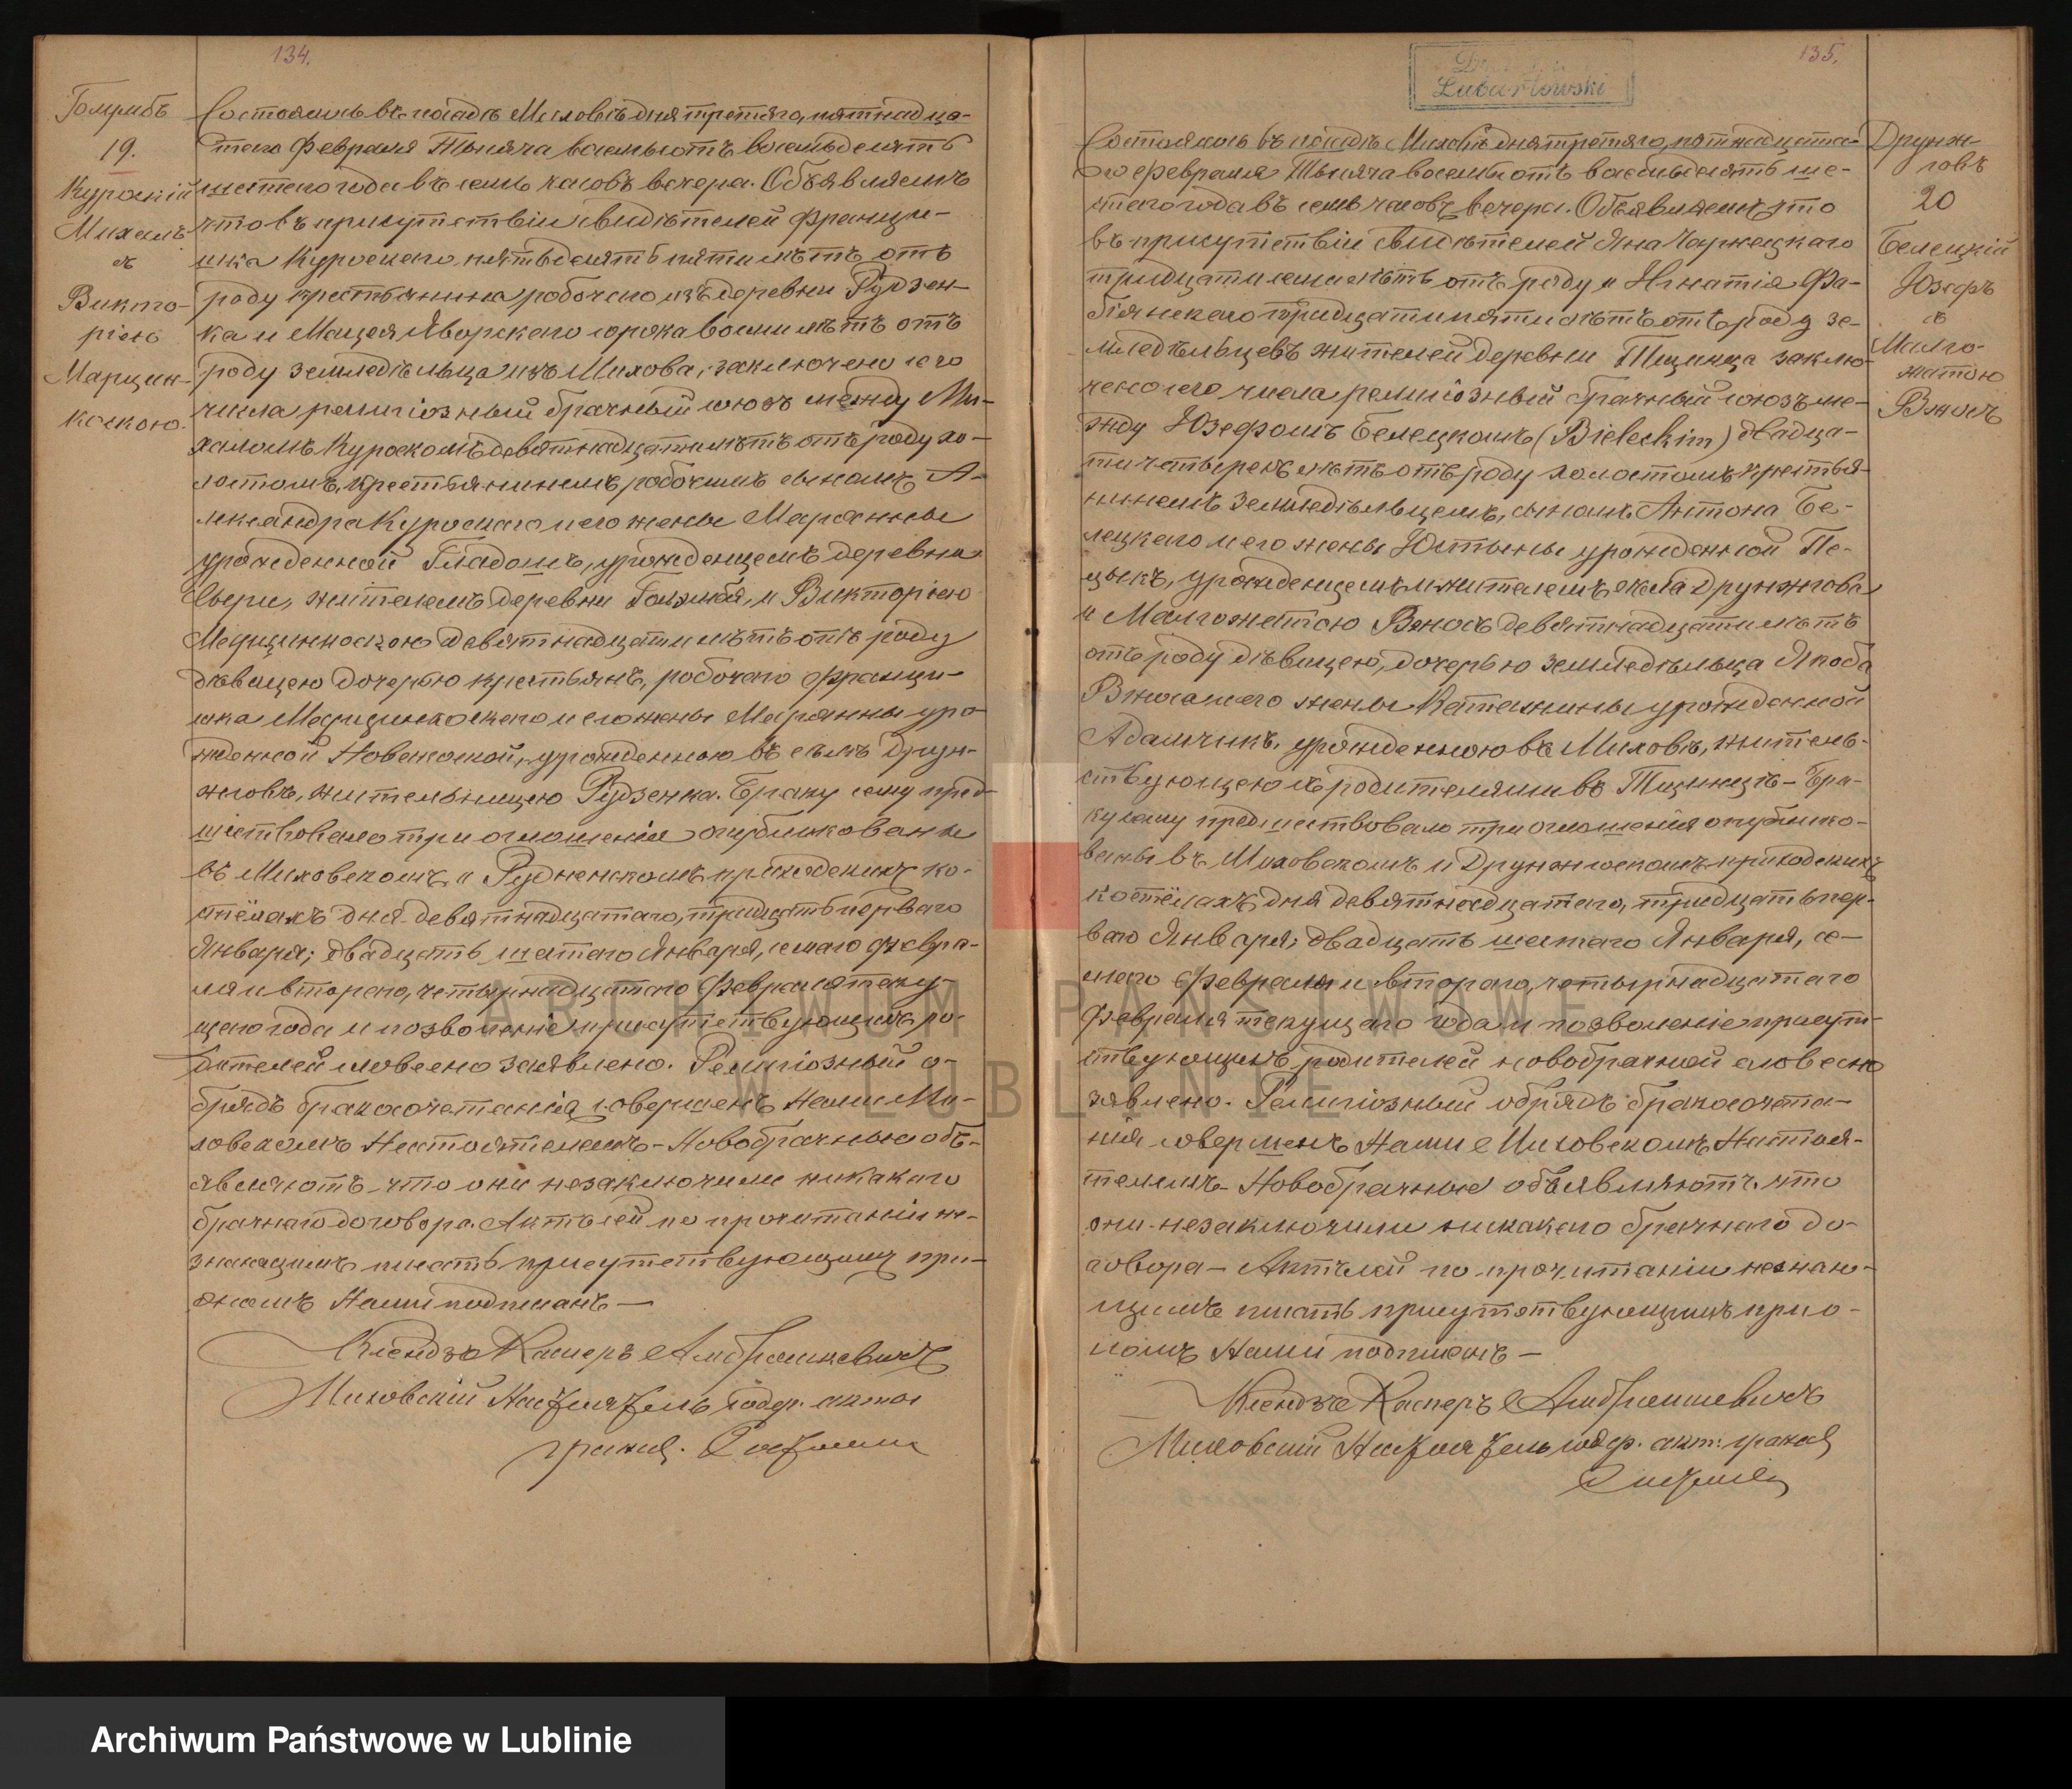 134.
Голумбъ
19.
Куроскій
Михалъ
съ
Викто-
ріею
Марцин-
коскою.
Состоялось въ посадѣ Миховѣ дня третяго, пятнадца-
таго Февраля Тысяча восемьсотъ восемьдесятъ
шестого года въ семь часовъ вечера. Объявляемъ
что въ присутствіи свидѣтелей Франци-
шка Куроскаго, пятьдесятъ пяти лѣтъ отъ
роду крестьянина робочего изъ деревни Рудзен-
ка и Мацея Яворскаго сорока восми лѣтъ отъ
роду земледѣльца изъ Михова, заключено сего
числа религіозный брачный союзъ между Ми-
халомъ Куроскомъ девятнадцати лѣтъ отъ роду хо-
лостомъ, крестьяниномъ робочимъ сыномъ А-
лександра Куроскаго и его жены Маріанны
урожденной Гладошъ, урожденцемъ деревни
жителемъ деревни Голумба, и Викторіею
девятнадцати лѣтъ отъ роду
дѣвицею дочерью крестьянъ, робочаго Франци-
шка и его жены Маріанны уро-
жденной Новеноской, урожденною въ селѣ Друн-
жговъ, жительницею Рудзенка. Браку сему пред-
шествовало три оглошенія опубликованы
въ Миховскомъ и Рудзенскомъ приходскихъ ко-
стёлахъ дня девятнадцатаго, тридцать перваго
Января; двадцать шестаго Января, семаго Февра-
ля и втораго, четырнадцатаго Февраля теку-
щаго года и позволеніе присутствующихъ ро-
дителей словесно заявлено. Религіозный о-
брядъ бракосочетанія совершенъ Нами Ми-
ховскомъ Настоятелемъ - Новобрачные объ-
являютъ что они незаключили никакого
брачнаго договора. Актъ сей по прочитаніи не-
знающимъ писать присутствующимъ при-
Нами подписанъ —
Ксендзъ Касперъ Амброшкевичъ
Миховскій Настоятель содер. акты
гражд.
135.
Lubartowski
Состоялось въ посадѣ Миховѣ дня третяго, пятнадцата-
го Февраля Тысяча восемьсотъ восемьдесятъ ше-
стаго года въ семь часовъ вечера. Объявляемъ что
въ присутствіи свидѣтелей Яна Чарнецкаго
тридцати семи лѣтъ отъ роду и Игнатія Фа-
біянскаго тридцати пяти лѣтъ отъ роду зе-
мледѣльцевъ жителей деревни Тщинца заклю-
ченого сего числа религіозный брачный союзъ ме-
жду Юзефомъ Белецкомъ (Bieleckim) двадца-
ти четырехъ лѣтъ отъ роду холостомъ крестья-
ниномъ земледѣльцемъ, сыномъ Антона Бе-
лецкаго и его жены Юстыны урожденной Пе-
цыкъ, урожденцемъ и жителемъ села Друнжгова
и Малгожатою Вжосъ девятнадцати лѣтъ
отъ роду дѣвицею, дочерью земледѣльца Якоба
Вжоса и его жены Катажины урожденной
Адамчикъ, урожденною въ Миховѣ, житель-
ствующею съ родителями въ Тщинцѣ - Бра-
ку сему предшествовало три оглошенія опублико-
ваны въ Миховскомъ и Друнжговскомъ приходскихъ
костёлахъ, дня девятнадцатаго, тридцать пер-
ваго Января; двадцать шестаго Января, се-
маго Февраля и втораго, четырнадцатаго
Февраля текущаго года и позволеніе присут-
ствующихъ родителей новобрачной словесно
заявлено. Религіозный обрядъ бракосочета-
нія совершенъ Нами Миховскомъ Настоя-
телемъ - Новобрачные объявляютъ что
они незаключили никакаго брачнаго до-
говора - Актъ сей по прочитаніи незнаю-
щимъ писать присутствующимъ
Нами подписанъ —
Ксендзъ Касперъ Амброшкевичъ
Миховскій Настоятель содер. акт: гражд
Друнж-
говъ
20
Белецкій
Юзефъ
съ
Малго-
жатою
Вжосъ
ARCHIWUM PAŃSTWOWE
W LUBLINIE
Archiwum Państwowe w Lublinie